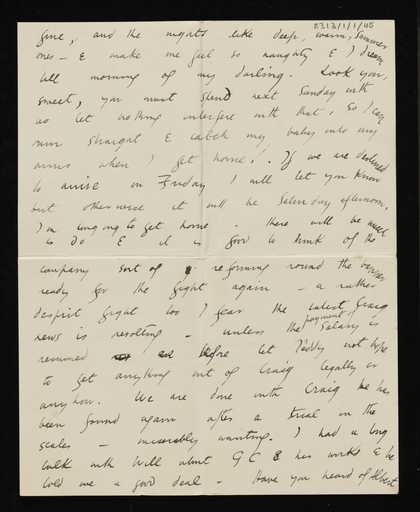 AZ12/1/1/45
fine, and the nights like deep, warm, summer
ones – & make me feel so naughty & I dream
till morning of my darling. Look you,
sweet, you must spend next Sunday with
us let nothing interfere with that, so I can
run straight & catch my baby into my
arms when I get home! If we are destined
to arrive on Friday I will let you know
but otherwise it will be Saturday afternoon.
I'm longing to get home – there will be much
to do & it is good to think of the
company sort of reforming round the
ready for the fight again – a rather
desperate fight too I fear the latest Craig
news is revolting – unless the payment of salary is
resumed before let Teddy not hope
to get anything out of Craig legally or
anyhow. We are done with Craig he has
been found again after a trial in the
scales – miserably wanting. I had a long
talk with Will about G C & his works & he
told me a good deal – Have you heard of Albert